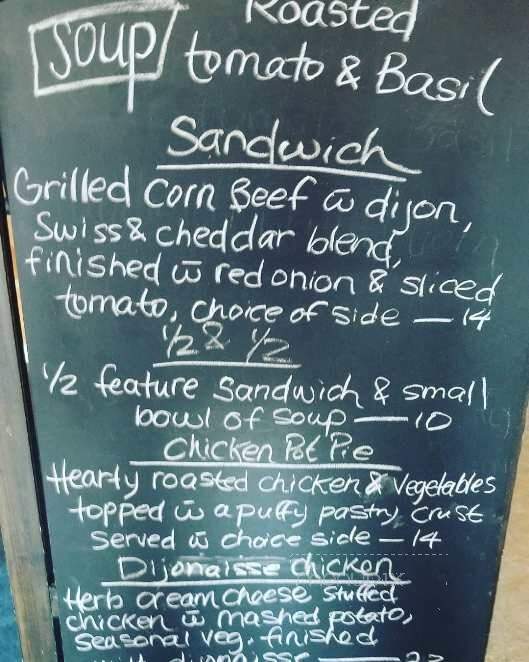 Roasted
Soup tomato & Basil
Sandwich
Grilled Corn Beef w̄ dijon,
Swiss & cheddar blend,
finished w̄ red onion & sliced
tomato, choice of side — 14
1/2 & 1/2
1/2 feature Sandwich & small
bowl of soup — 10
Chicken Pot Pie
Hearty roasted chicken & vegetables
topped w̄ a puffy pastry crust
Served w̄ choice side — 14
Dijonaisse chicken
Herb cream cheese stuffed
chicken w̄ mashed potato,
seasonal veg. finished
dijonaisse —